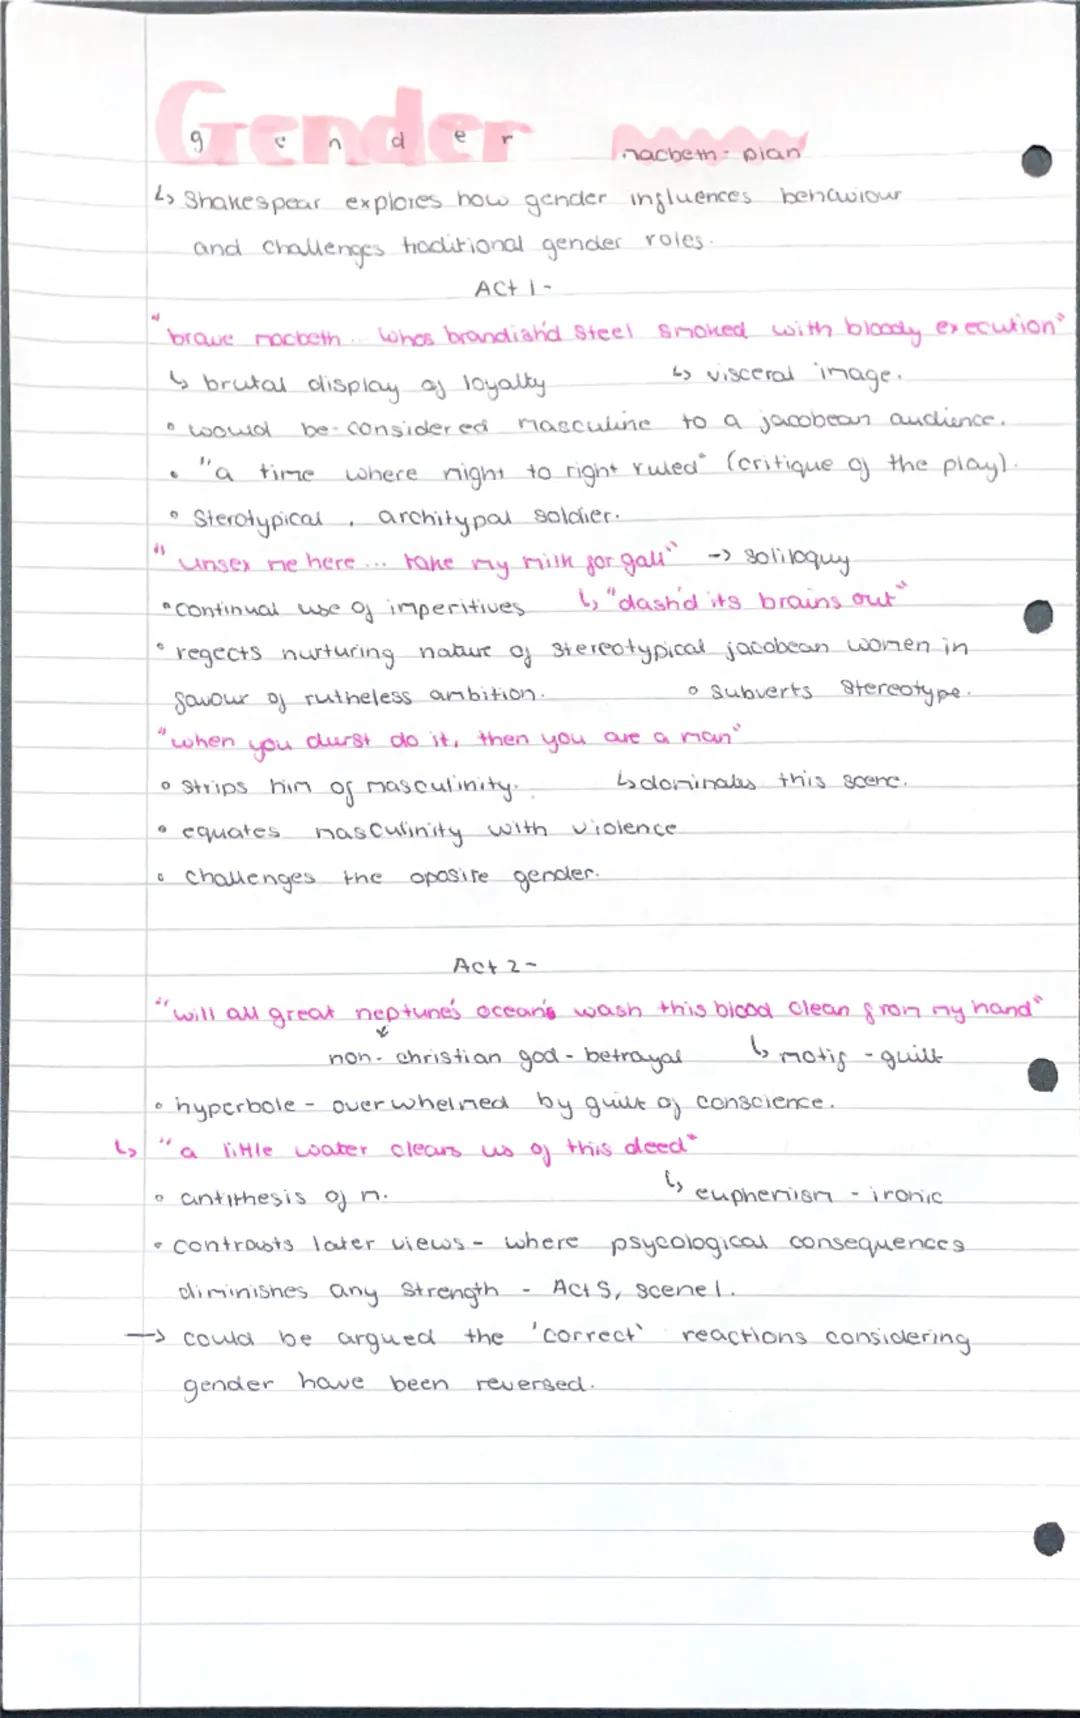 Gender
g e n d e r
macbeth - plan
↳ Shakespear explores how gender influences behaviour
and challenges traditional gender roles.
Act 1 -
"brave macbeth... whos brandish'd steel smoked with bloody execution"
↳ brutal display of loyalty ↳ visceral image.
• would be considered masculine to a jacobean audience.
• "a time where might to right ruled" (critique of the play).
• Sterotypical, architypal soldier.
"unsex me here... take my milk for gall" -> soliloquy
• continual use of imperitives ↳ "dash'd its brains out"
• regects nurturing nature of stereotypical jacobean women in
favour of rutheless ambition. • subverts stereotype.
"when you durst do it, then you are a man"
• strips him of masculinity. ↳ dominates this scene.
• equates masculinity with violence
• challenges the oposite gender.
Act 2 -
"will all great neptune's ocean's wash this blood clean from my hand"
non-christian god - betrayal ↳ motif - guilt
• hyperbole - overwhelmed by guilt of conscience.
↳ "a little water clears us of this deed"
• antithesis of m. ↳ euphemism - ironic
• contrasts later views - where psycological consequences
diminishes any strength - Act 5, scene 1.
→ could be argued the 'correct' reactions considering
gender have been reversed.